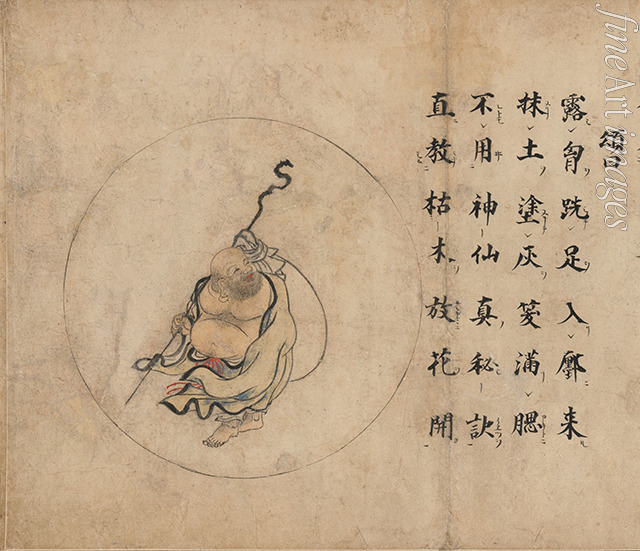 頌曰
露胷跣足入鄽来
抹土塗灰笑満腮
不用神仙真秘訣
直教枯木放花開
fine Art images